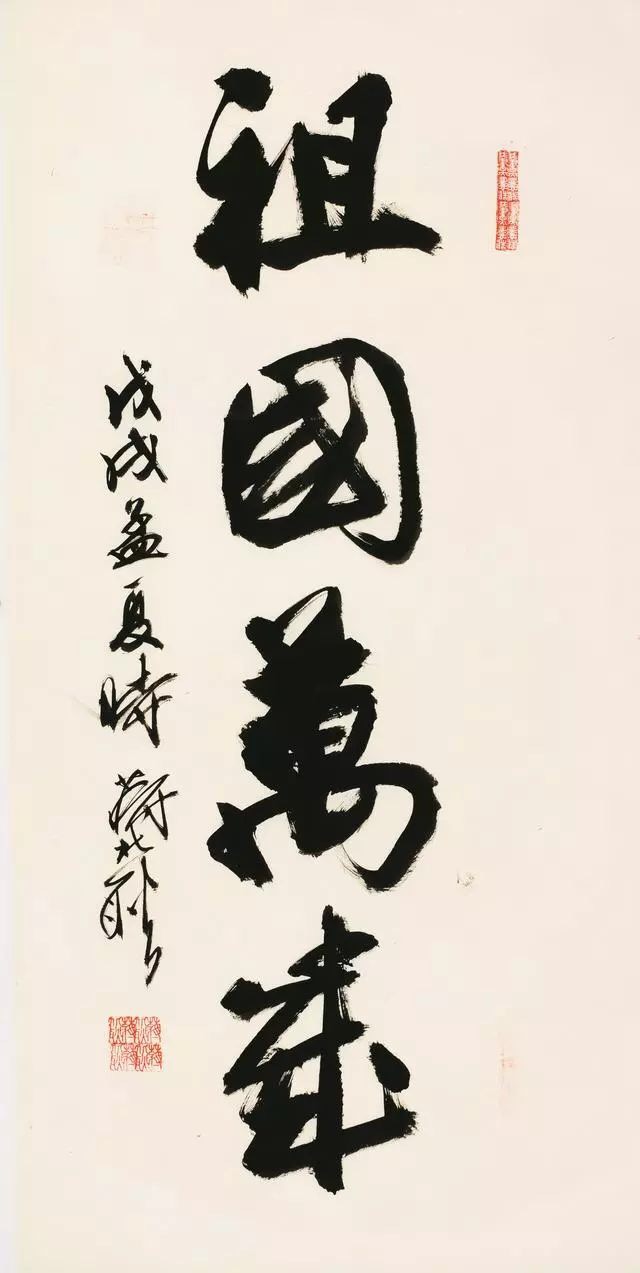 祖國萬歲
戊戌孟夏時